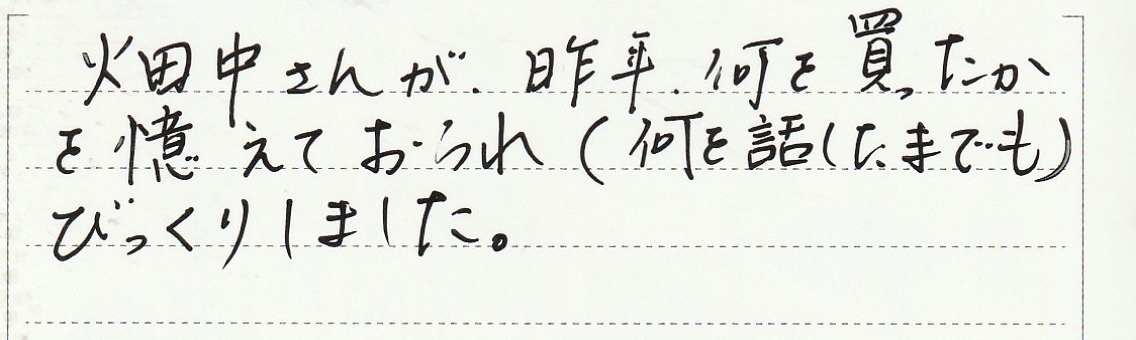 畑中さんが、昨年、何を買ったか
を憶えておられ(何を話したまでも)
びっくりしました。